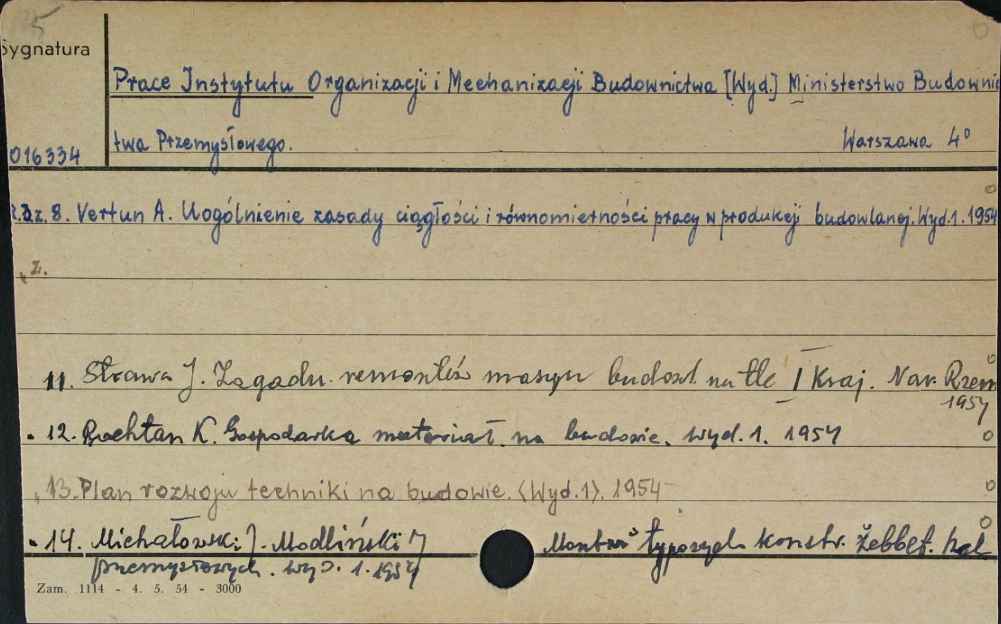 5
Sygnatura
Prace Instytutu Organizacji i Mechanizacji Budownictwa [Wyd.] Ministerstwo Budownic
016334 twa Przemysłowego. Warszawa 4°
z. 8. Vertun A. Uogólnienie zasady ciągłości i równomierności pracy w produkcji budowlanej. Wyd.1. 1954
" z.
11. Strawa J. Zagadn. remontów maszyn budowl. na tle I Kraj. Nar. Rzem
1954
12. Rochtan K. Gospodarka materiał. na budowie. Wyd. 1. 1954
13. Plan rozwoju techniki na budowie. (Wyd.1). 1954
14. Michałowski J. Modliński J Montaż typowych konstr. żelbet. hal
przemysłowych. Wyd. 1. 1954
Zam. 1114 - 4. 5. 54 - 3000